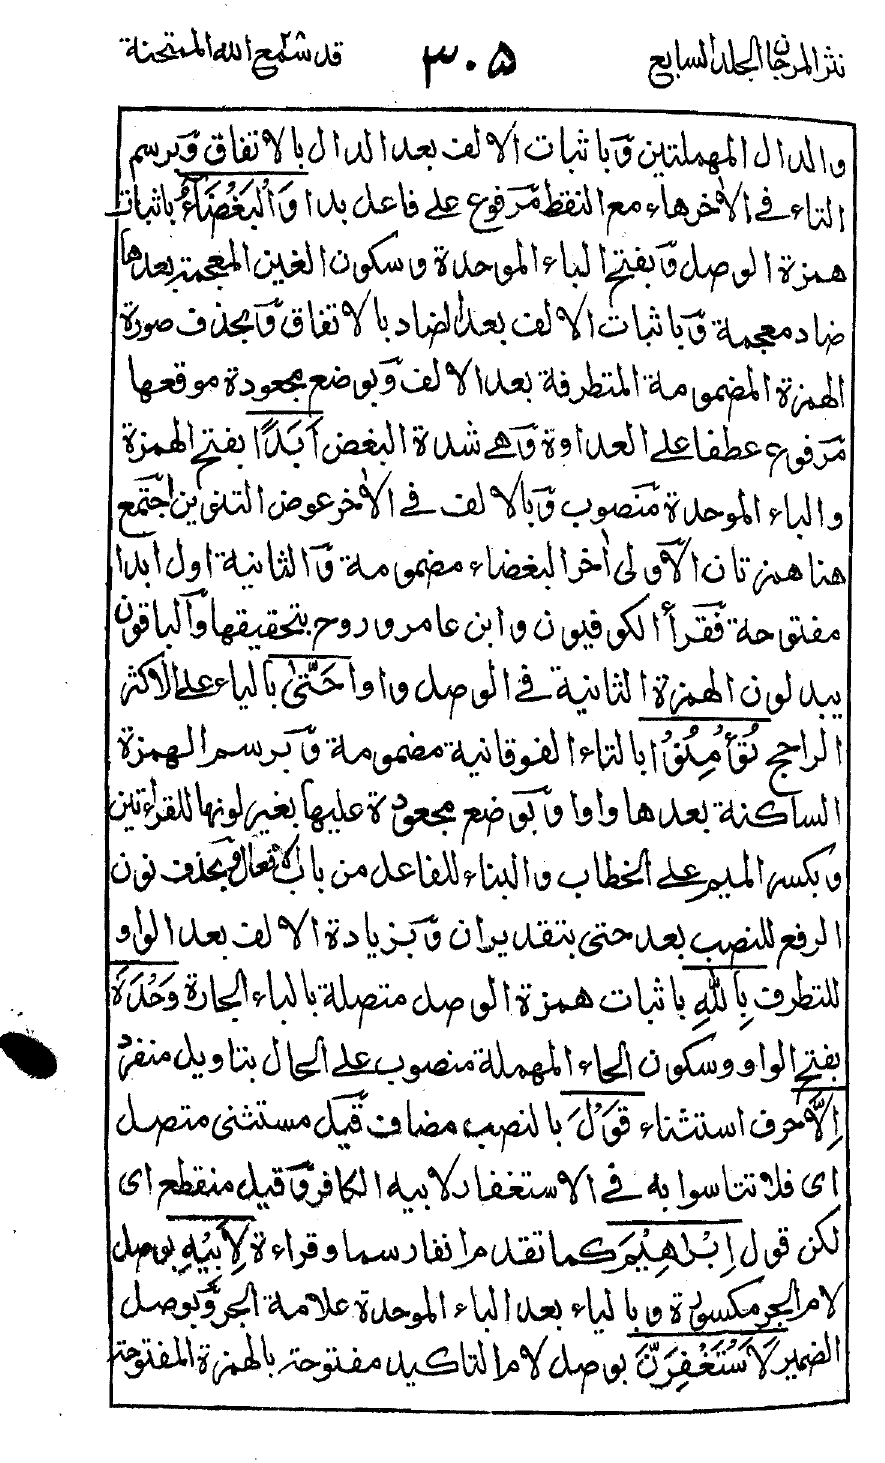 نثر المرجان الجلد السابع ٣٠٥ قد سمع الله الممتحنة
والدال المهملتين وباثبات الالف بعد الدال بالاتفاق وبرسم
التاء فى الاٰخر هاء مع النقط مرفوع على فاعل بدا وَالْبَغْضَاءُ باثبات
همزة الوصل وبفتح الباء الموحدة وسكون الغين المعجمة بعدها
ضاد معجمة وباثبات الالف بعد الضاد بالاتفاق وبحذف صورة
الهمزة المضمومة المتطرفة بعد الالف وبوضع مجعودة موقعها
مرفوع عطفا على العداوة وهى شدة البغض اَبَدًا بفتح الهمزة
والباء الموحدة منصوب وبالالف فى الاٰخر عوض التنوين اجتمع
هنا همزتان الاولى اٰخر البغضاء مضمومة والثانية اول ابدا
مفتوحة فقرأ الكوفيون وابن عامر وروح بتحقيقها والباقون
يبدلون الهمزة الثانية فى الوصل واوا حَتّٰى بالياء على الاكثر
الراجح تُؤْمِنُوْا بالتاء الفوقانية مضمومة وبرسم الهمزة
الساكنة بعدها واوا وبوضع مجعودة عليها بغير لونها للقراءتين
وبكسر الميم على الخطاب والبناء للفاعل من باب الافعال وبحذف نون
الرفع للنصب بعد حتى بتقدير ان وبزيادة الالف بعد الواو
للتطرف بِاللهِ باثبات همزة الوصل متصلة بالباء الجارة وَحْدَهٗ
بفتح الواو وسكون الحاء المهملة منصوب على الحال بتاويل منفرد
اِلَّا حرف استثناء قَوْلَ بالنصب مضاف قيل مستثنى متصل
اى فلا تتاسوا به فى الاستغفار لابيه الكافر وقيل منقطع اى
لكن قول اِبْرٰهِيْمَ كما تقدم انفا رسما وقراءة لِاَبِيْهِ بوصل
لام الجر مكسورة وبالياء بعد الباء الموحدة علامة الجر وبوصل
الضمير لَاَسْتَغْفِرَنَّ بوصل لام التاكيد مفتوحة بالهمزة المفتوحة